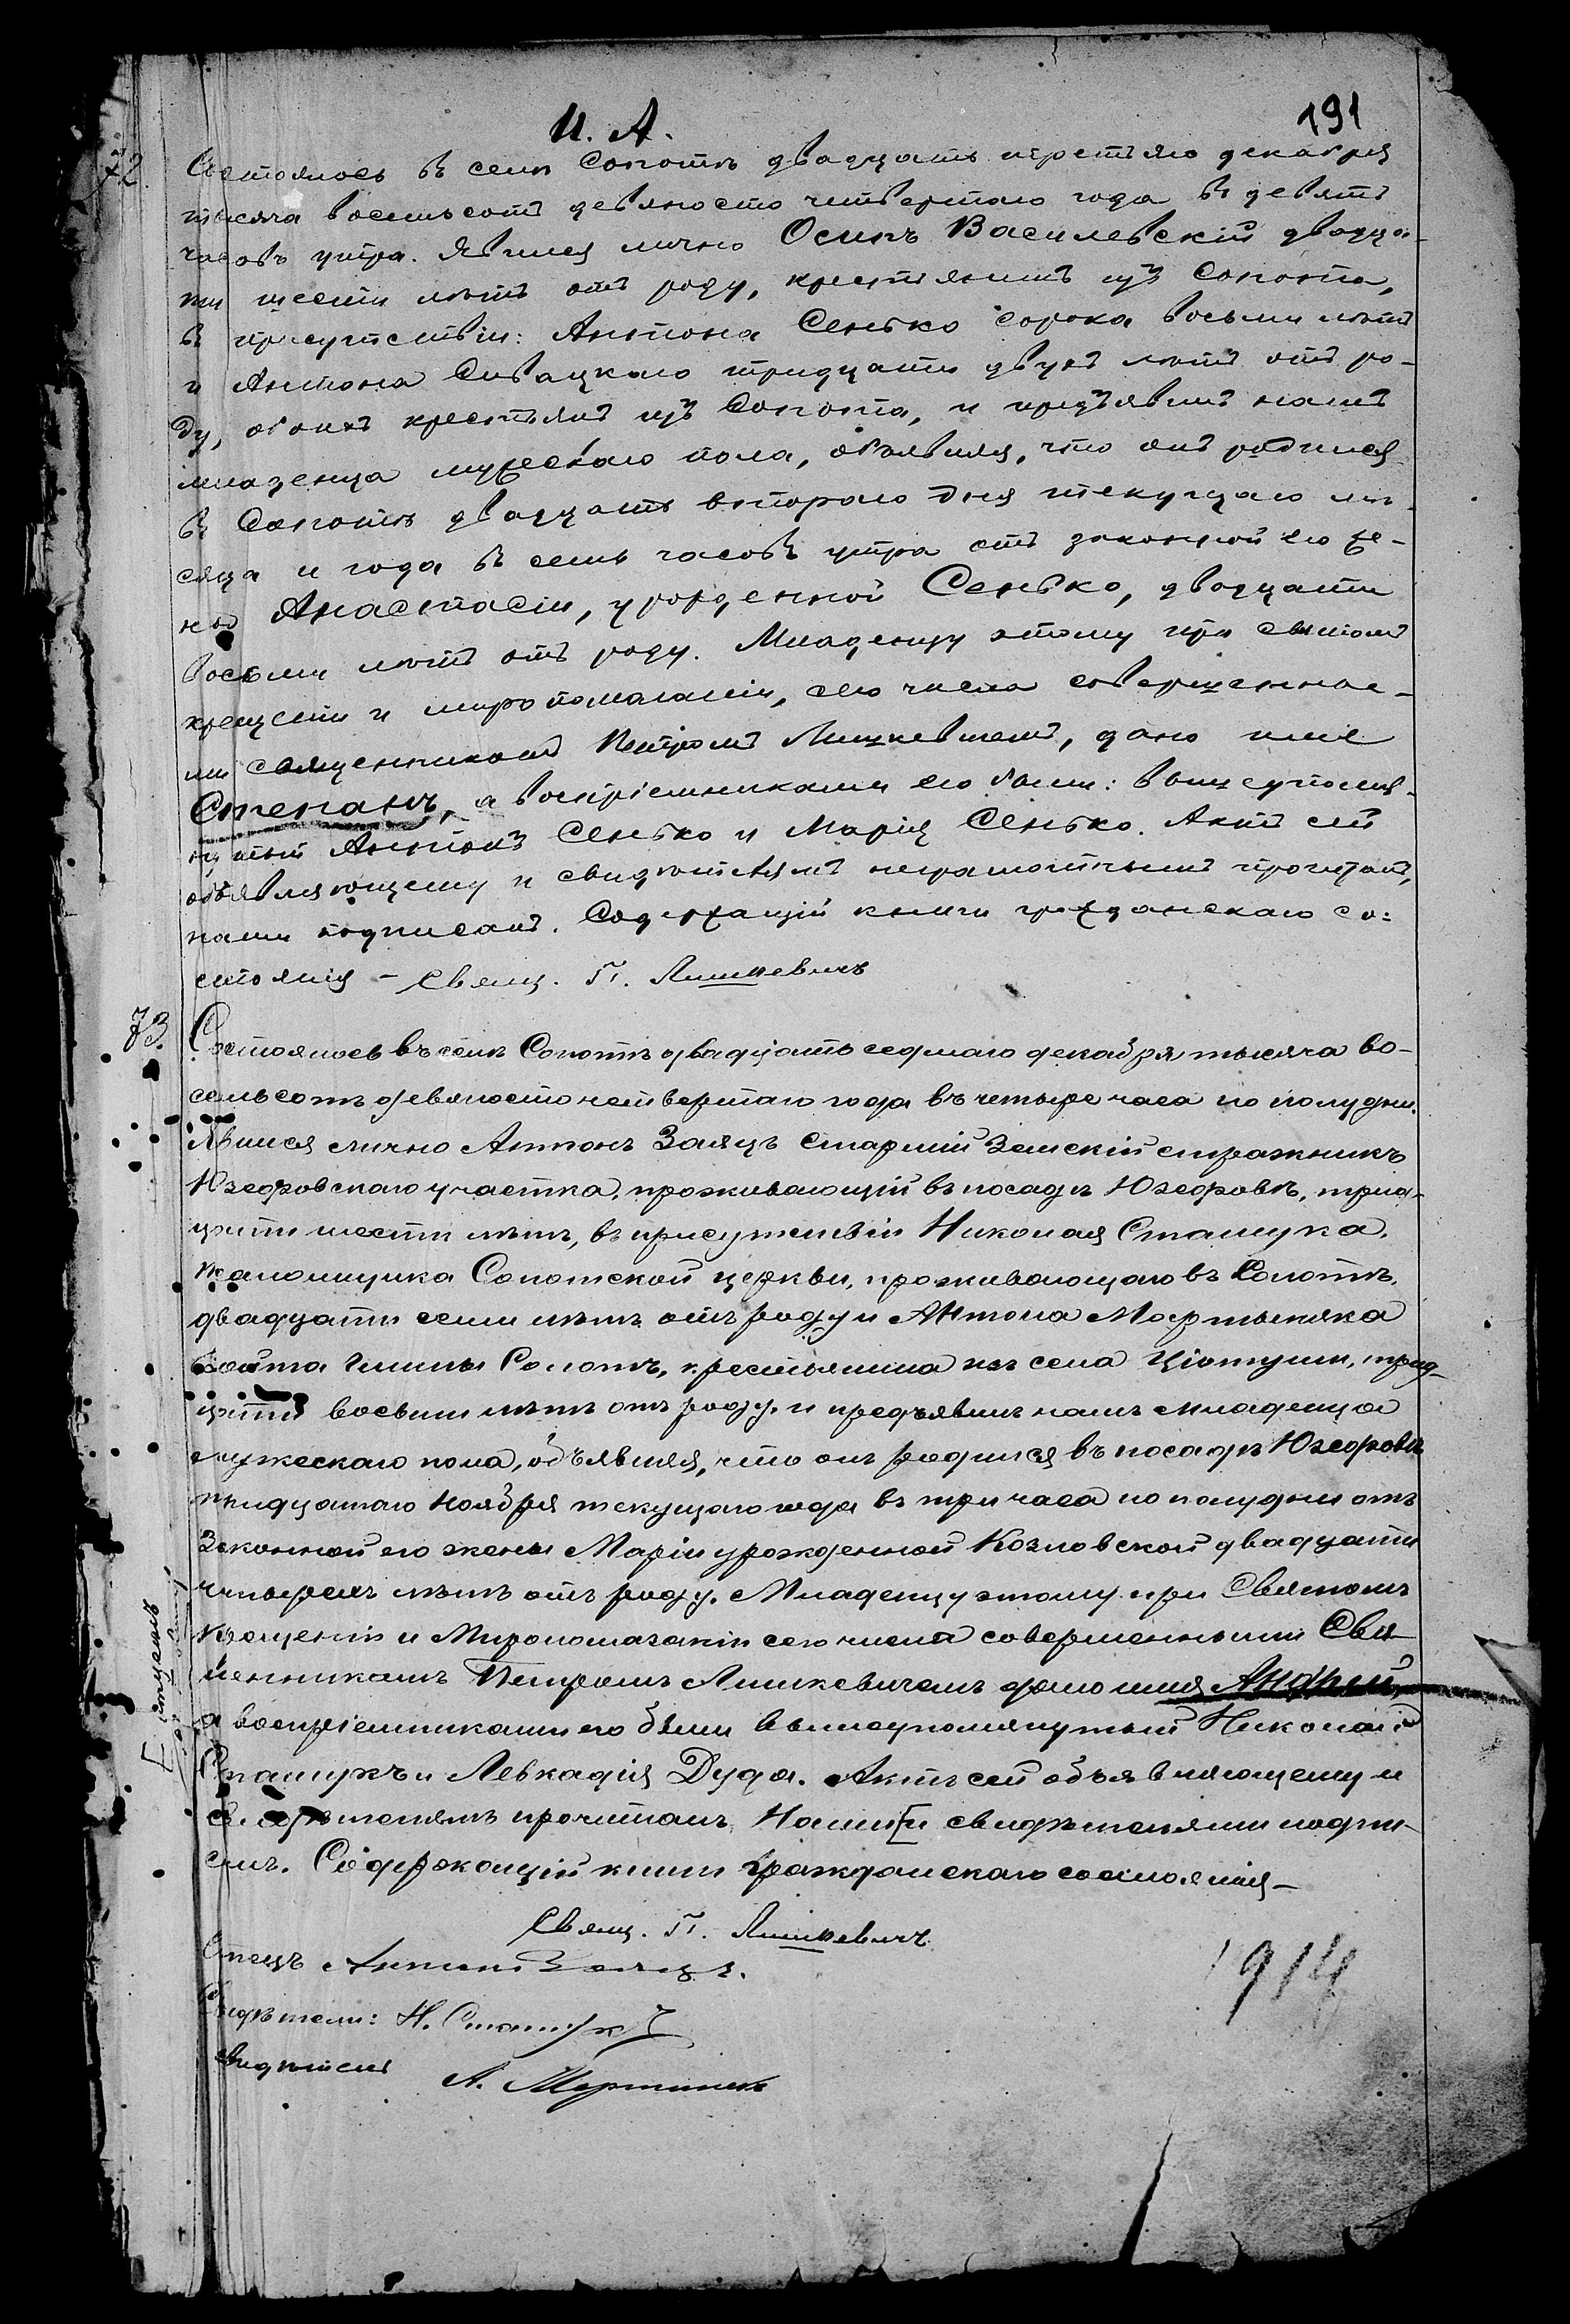 И. А.
191
72.
Состоялось въ селѣ Сопотѣ двадцать третьяго декабря
тысяча восемьсотъ девяносто четвертаго года въ девять
часовъ утра. Явился лично Осипъ Василевскій двадца-
ти шести лѣтъ отъ роду, крестьянинъ изъ Сопота,
въ присутствіи: Антона Сенько сорока восьми лѣтъ
и Антона Сивацкаго тридцати двухъ лѣтъ отъ ро-
ду, обоихъ крестьянъ изъ Сопота, и предъявилъ намъ
младенца мужескаго пола, объявляя, что онъ родился
въ Сопотѣ двадцать втораго дня текущаго мѣ-
сяца и года въ семь часовъ утра отъ законной его же-
ны Анастасіи, урожденной Сенько, двадцати
восьми лѣтъ отъ роду. Младенцу этому при святомъ
крещеніи и миропомазаніи, сего числа совершенног-
мъ священникомъ Петромъ Лишкевичемъ, дано имя
Степанъ, а воспріемниками его были: вышеупомя-
нутый Антонъ Сенько и Марія Сенько. Актъ сей
объявляющему и свидѣтелямъ неграмотнымъ прочитанъ,
нами подписанъ. Содержащій книги гражданскаго со-
стоянія – Свящ. П. Лишкевичъ
73.
Состоялось въ селѣ Сопотѣ двадцать седмаго декабря тысяча во-
семьсотъ девяносто четвертаго года въ четыре часа по полудни.
Явился лично Антонъ Заяцъ Старшій Земскій стражникъ
Юзефовскаго участка, проживающій въ посадѣ Юзефовѣ, трид-
цати шести лѣтъ, въ присутствіи Николая Сташука,
псаломщика Сопотской церкви, проживающаго въ Сопотѣ,
двадцати семи лѣтъ отъ роду и Антона Мартыняка
войта Гмины Сопотъ, крестьянина изъ села Ціотуши, трид-
цати восьми лѣтъ отъ роду, и предъявилъ намъ младенца
мужескаго пола, объявляя, что онъ родился въ посадѣ Юзефовѣ
тридцатаго Ноября текущаго года въ три часа по полудни отъ
Законной его жены Маріи урожденной Козловской двадцати
четырехъ лѣтъ отъ роду. Младенцу этому при Святомъ
Крещеніи и Миропомазаніи сего числа совершенными Свя-
щенникамъ Петромъ Лишкевичемъ дано имя Андрей,
а воспріемниками его были вышеупомянутый Николай
Сташукъ и Левкадія Дуда. Актъ сей объявляющему и
свидѣтелямъ прочитанъ Нами [и свидѣтелями подпи-
санъ. Содержащій книги Гражданскаго состоянія –
Свящ. П. Лишкевичъ
Отецъ Антонъ Заяцъ.
Свидѣтели: Н. Сташукъ
свидѣтель А. Мартынякъ
1914